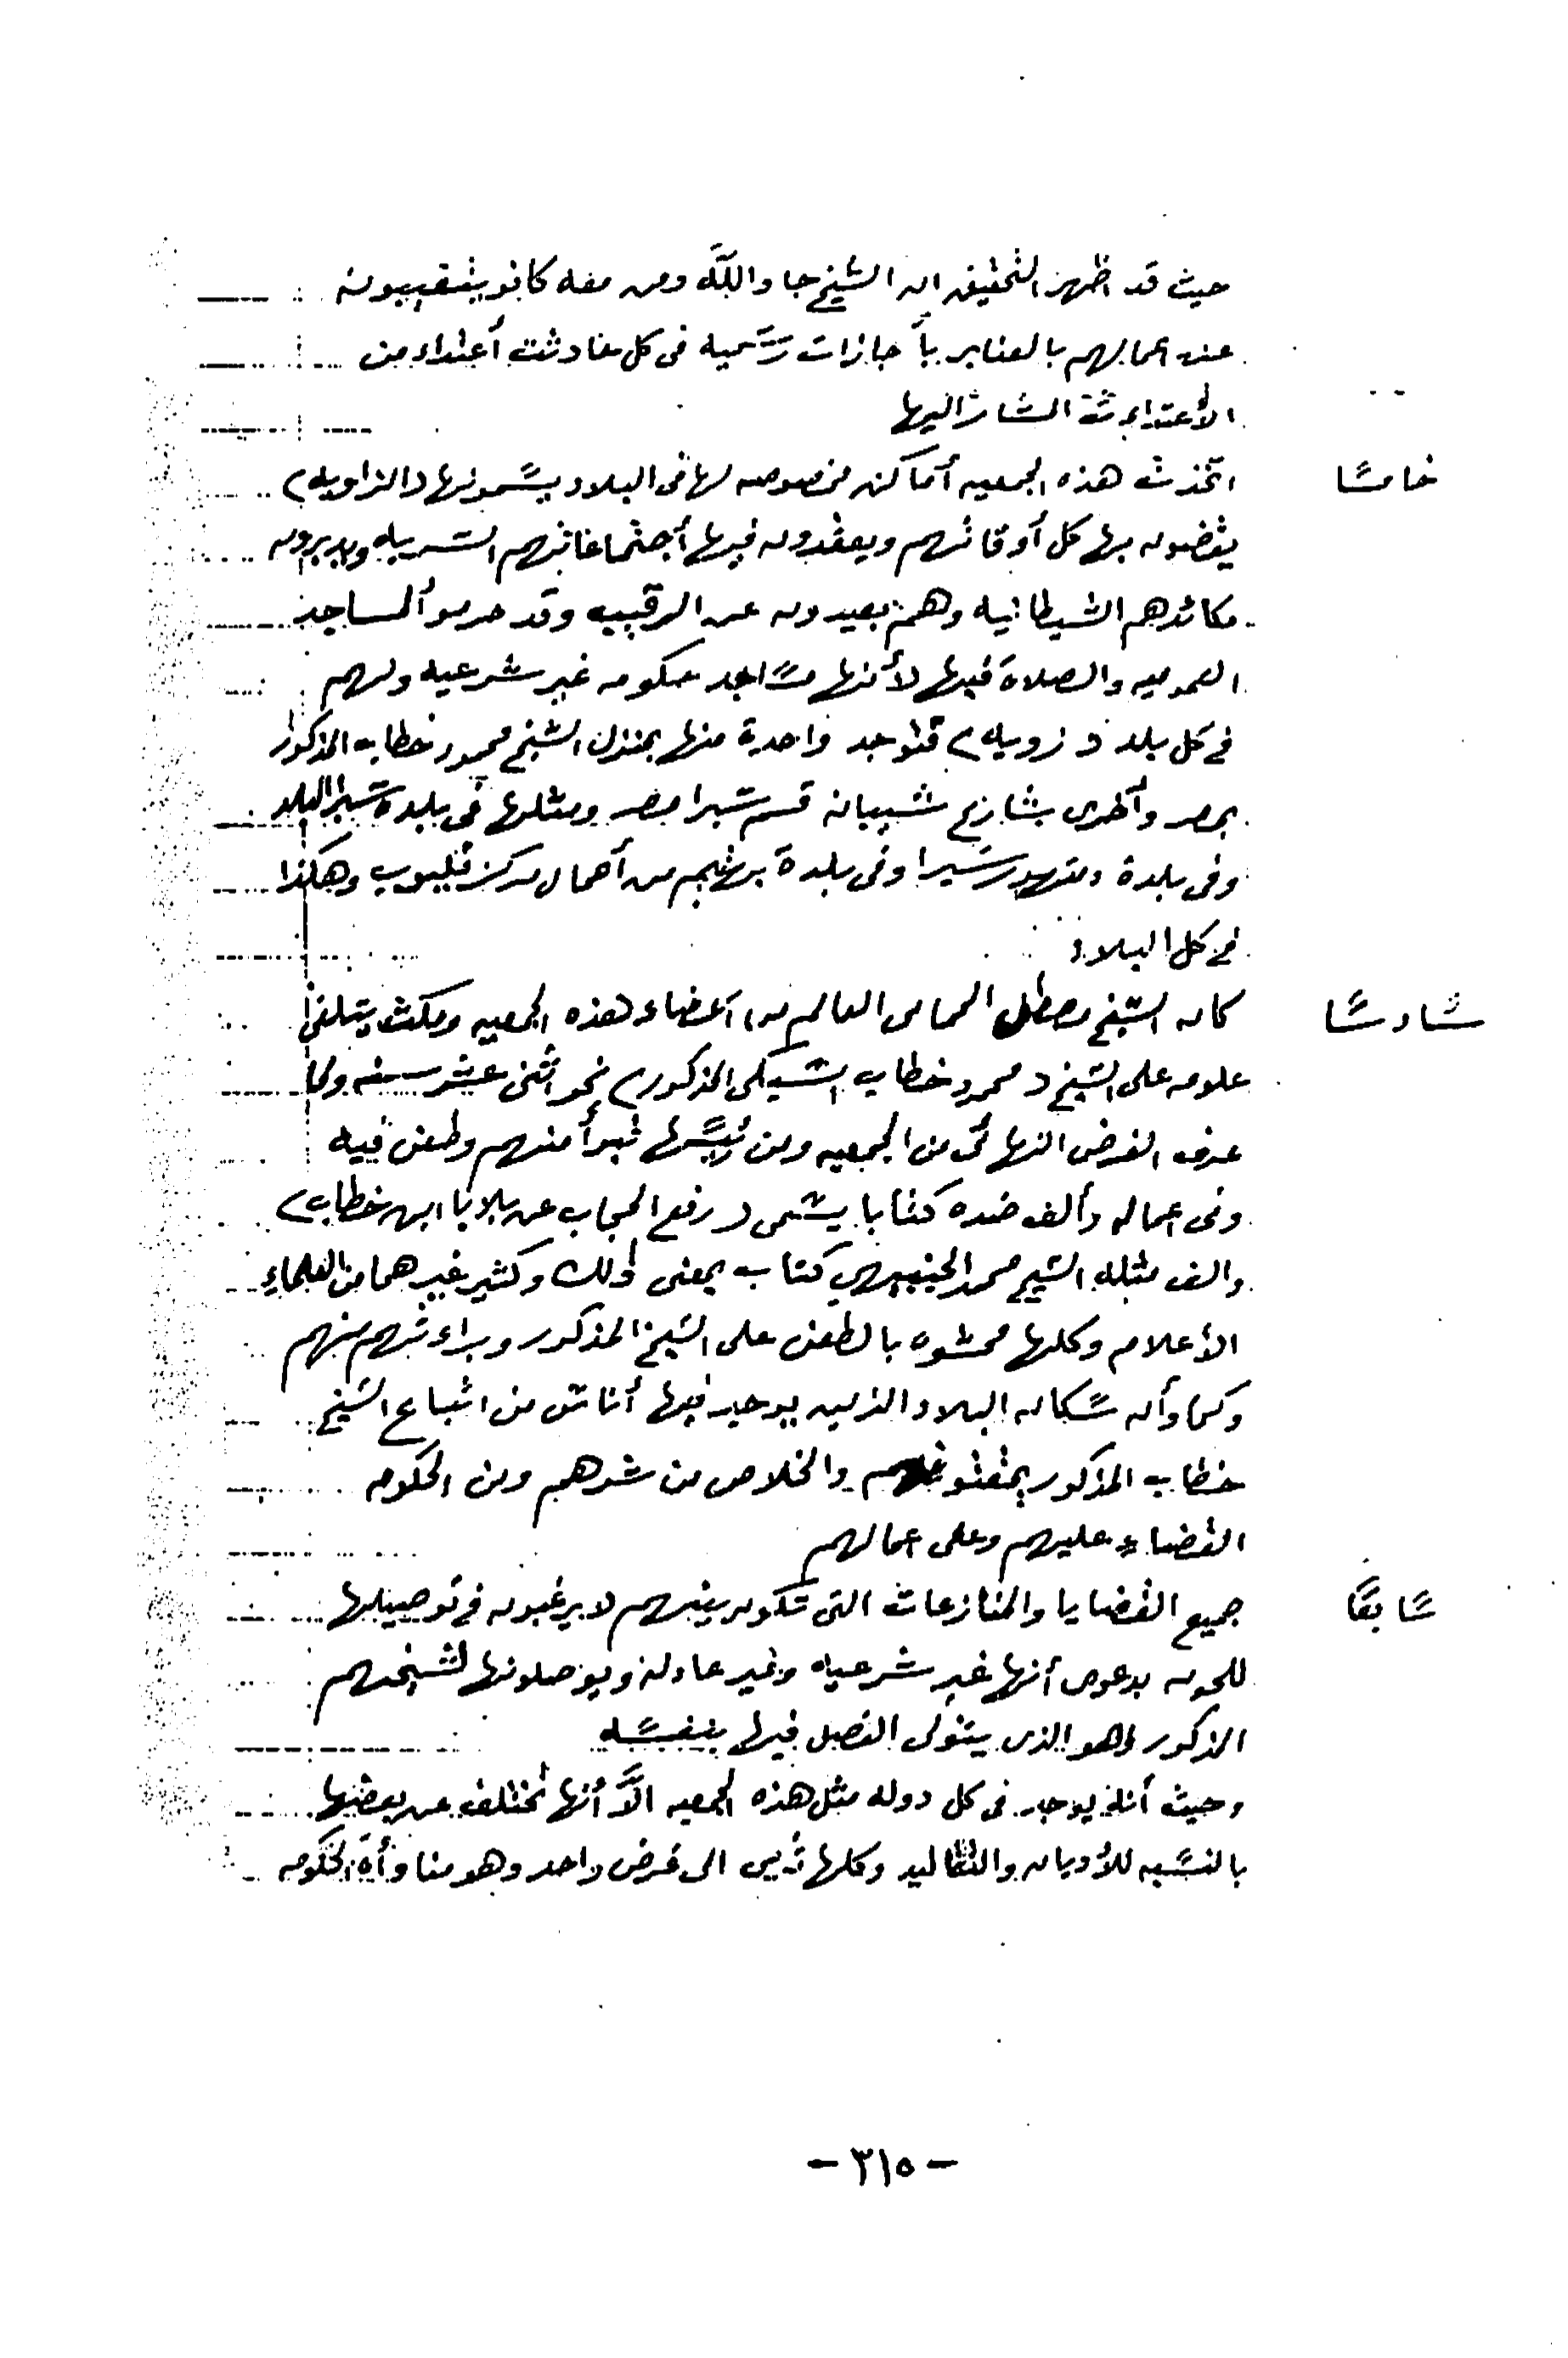 حيث قد أظهر التحقيق ان الشيخ جاد الله ومن معه كانو يتغيبون
عن اعمالهم بالعنابر بأجازات رسميه فى كل حادثت أعتداء من
الأعتداءت المشار اليها
خامسًا اتخذت هذه الجمعيه أماكن مخصوصه لها فى البلاد يسمونها (الزاويه)
يقضون بها كل أوقاتهم ويعقدون فيها أجتماعاتهم السريه ويدبرون
مكائدهم الشيطانيه وهم بعيدون عن الرقيب وقد حرموا المساجد
العموميه والصلاة فيها لأنها مساجد حكومه غير شرعيه ولهم
فى كل بلد (زويه) فتوجد واحدة منها بمنزل الشيخ محمود خطاب المذكور
بمصر وأخرى بشارع شيبان قسم شبرا مصر ومثلها فى بلدة شبرا البلد
وفى بلدة دمنهور شبرا وفى بلدة برشم من أعمال مركز قليوب وهكذا
فى كل البلاد
سادسًا كان الشيخ مصطفى الحمامى العالم من أعضاء هذه الجمعيه ومكث يتلقى
علومه على الشيخ (محمود خطاب السبكى المذكور) نحو أثنى عشر سنه ولما
عرف الغرض النهائى من الجمعيه ومن رئيسها تبرأ منهم وطعن فيه
وفى اعماله وألف ضده كتابا يسمى (رفع الحجاب عن بلايا ابن خطاب)
والف مثله الشيخ محمد كتاب بمعنى ذلك وكثير غيرهما من العلماء
الأعلام وكلها محشوه بالطعن على الشيخ المذكور وبراءتهم منهم
وكما وأن سكان البلاد الذين يوجد فيها أناس من اتباع الشيخ
خطاب المذكور يمقتو والخلاص من شرهم ومن الحكومه
القضاء عليهم وعلى اعمالهم
سابعًا جميع القضايا والمنازعات التى تكون بينهم لا يرغبون فى توصيلها
للحومه بدعوى أنها غير شرعيه وغير عادله ويوصلونها لشيخهم
المذكور وهو الذى يتولى الفصل فيها بنفسه
وحيث أنه يوجد فى كل دوله مثل هذه الجمعيه الا أنها تختلف عن بعضها
بالنسبه للأديان والتقاليد وكلها ترمى الى غرض واحد وهو مناوأة الحكومه
- ٣١٥ -